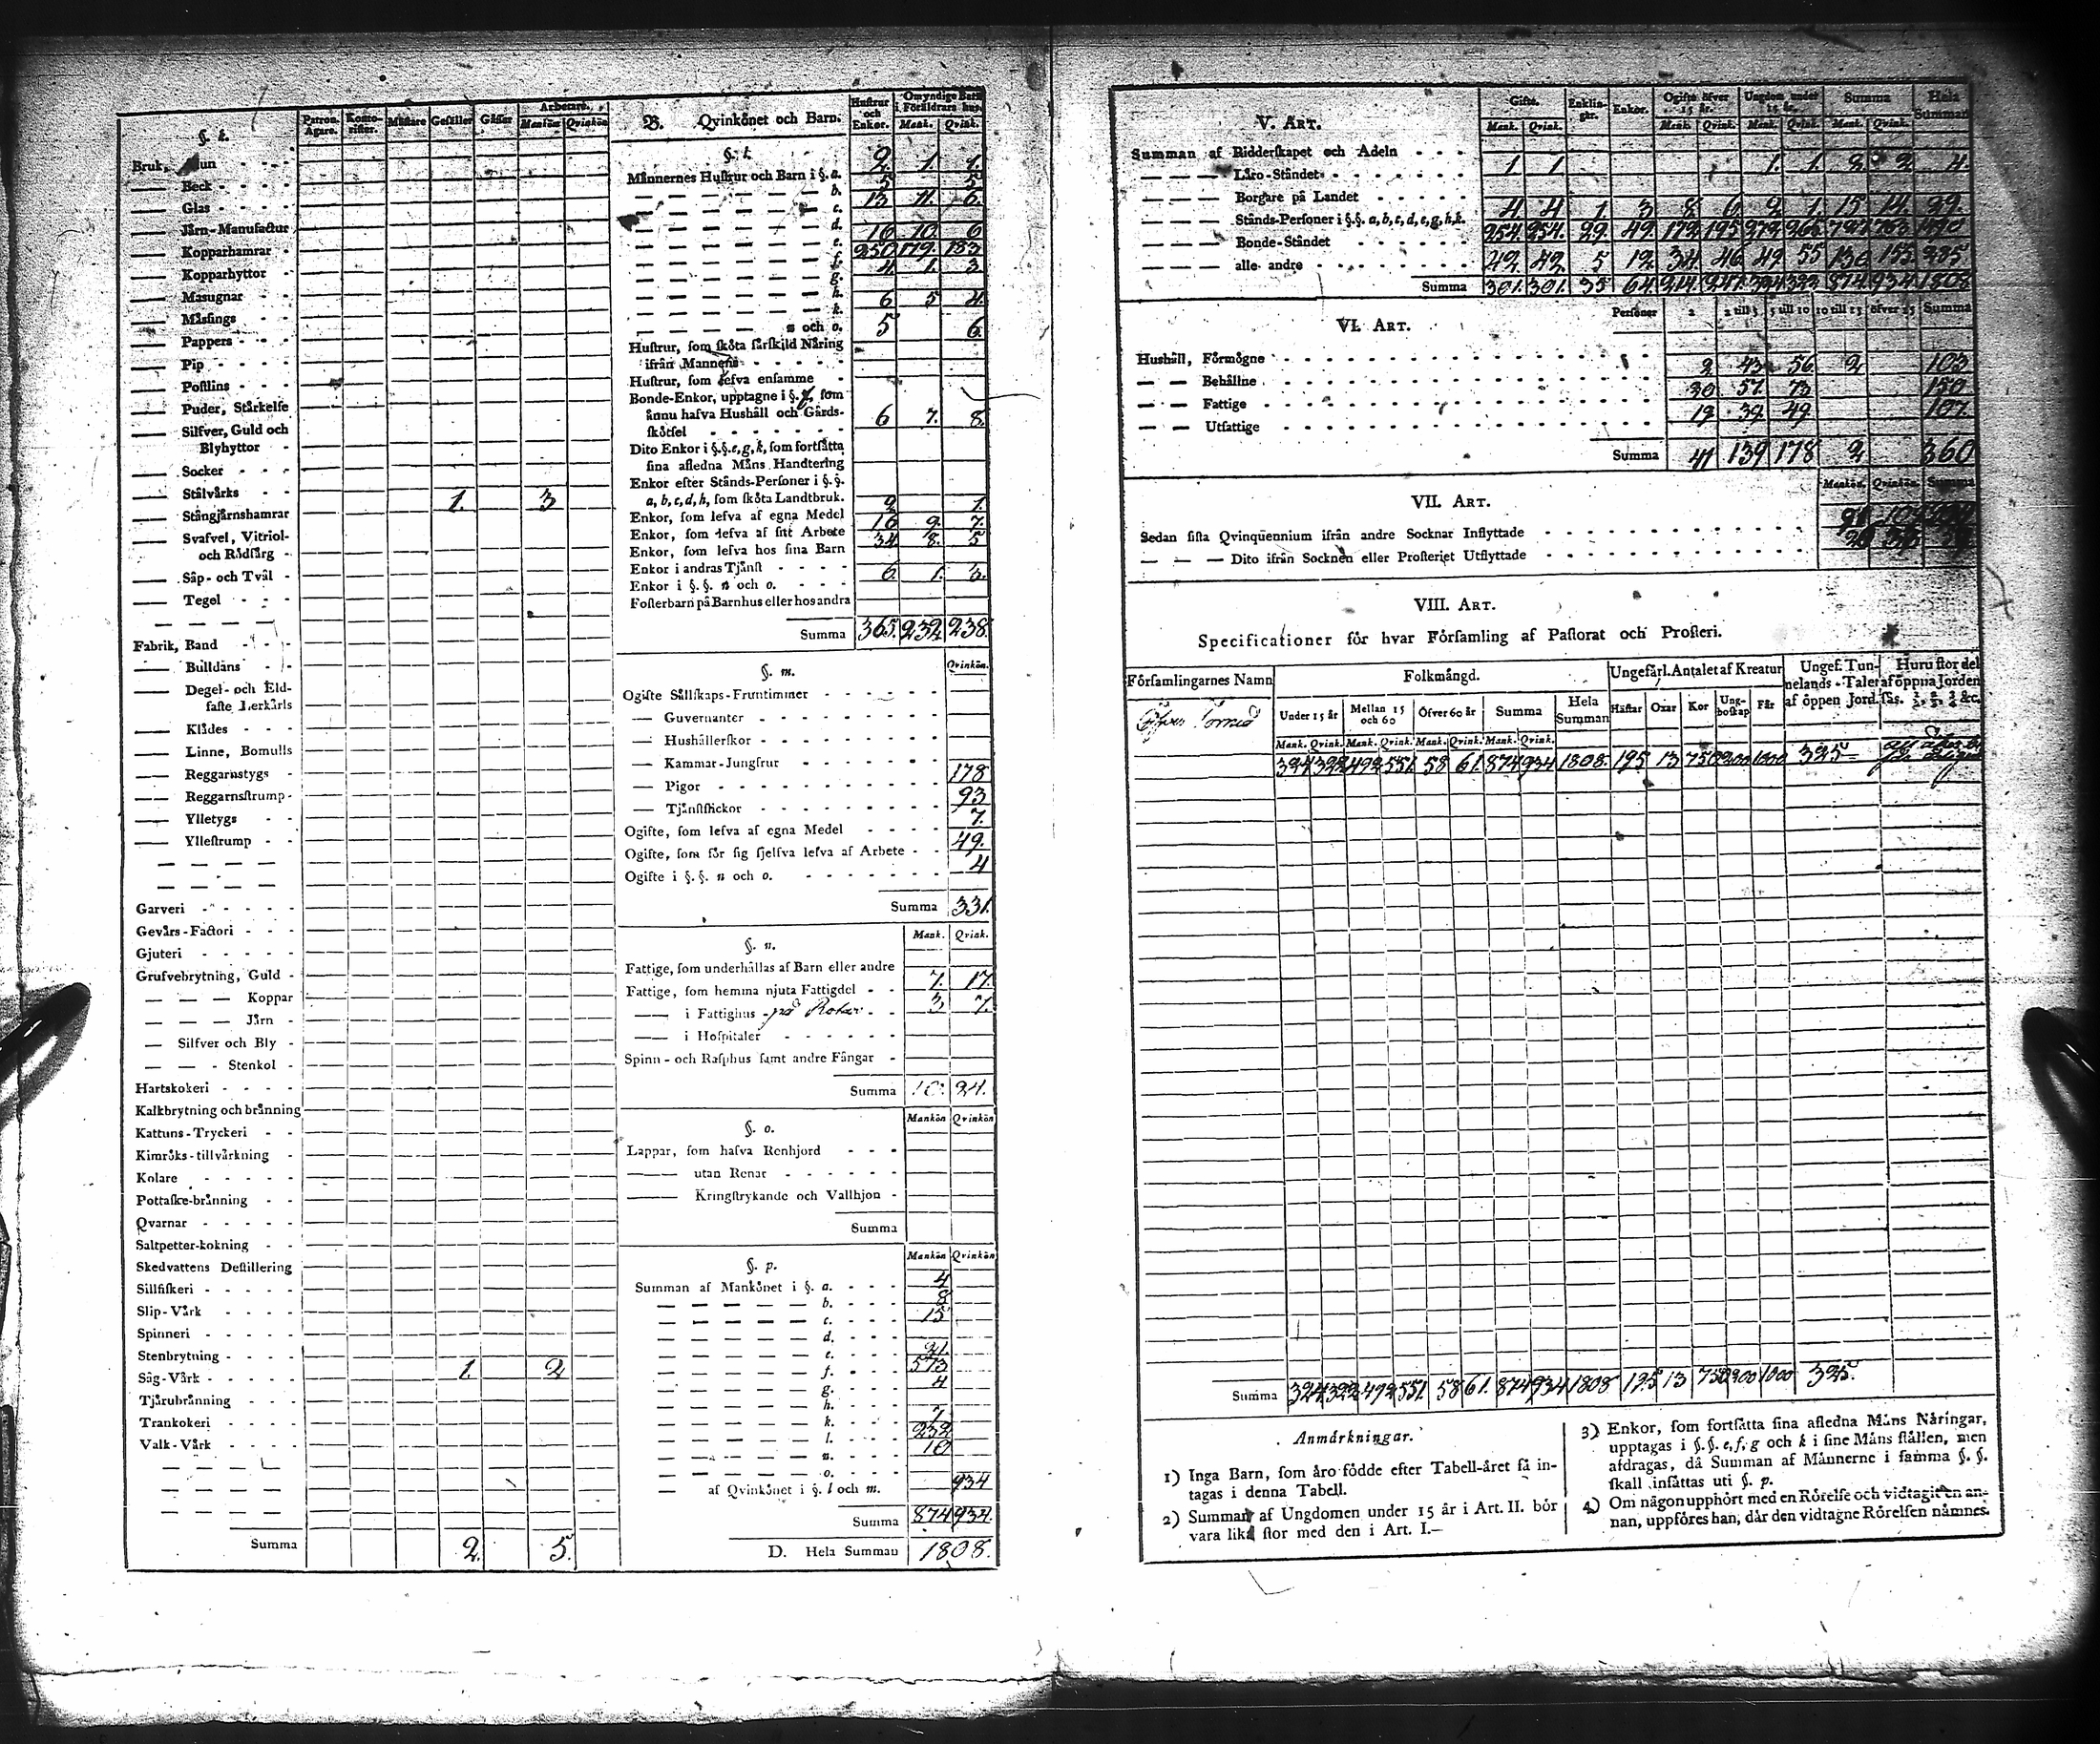 §. k. Patron. Ägare. Konto-rister. Mästare Gesäller Gåsser Arbetare. Mankön Qvinkön
Bruk,
— Beck - - - -
— Glas - - - -
— Järn-Manufactur
— Kopparhamrar -
— Kopparhyttor -
— Masugnar - -
— Måssings - -
— Pappers - - -
— Pip - - - -
— Postlins - - -
— Puder, Stärkelse
— Silfver, Guld och
Blyhyttor -
— Socker - - -
— Stålvärks - -
— Stångjärnshamrar 1. 3
— Svafvel, Vitriol-
och Rödfärg -
— Såp- och Tvål -
— Tegel - - -
— — — — —
Fabrik, Band - - -
— Bulldans - -
— Degel- och Eld-
faste Lerkärls
— Klädes - - -
— Linne, Bomulls
— Reggarnstygs -
— Reggarnstrump-
— Ylletygs - -
— Yllestrump - -
— — — —
— — — —
Garveri - - - - -
Gevärs-Factori - - -
Gjuteri - - - - -
Grufvebrytning, Guld -
— — — Koppar
— — — Järn -
— Silfver och Bly -
— — - Stenkol -
Hartskokeri - - - -
Kalkbrytning och bränning
Kattuns-Tryckeri - -
Kimröks-tillvärkning -
Kolare - - - - -
Pottaske-bränning - -
Qvarnar - - - - -
Saltpetter-kokning - -
Skedvattens Destillering
Sillfiskeri - - - - -
Slip-Värk - - - -
Spinneri - - - - -
Stenbrytning - - - -
Såg-Värk - - - - - 1. 2
Tjärubränning - - -
Trankokeri - - - -
Valk-Värk - - - -
— — — — —
— — — —
— — — —
Summa 2. 5.
B. Qvinkönet och Barn. Hustrur och Enkor. Omyndige Barn i Föräldrars hus. Mank. Qvink.
§. l.
Männernes Hustrur och Barn i §. a. 2. 1. 1.
— — — — — b. 5 5
— — — — — c. 13 11. 6.
— — — — — d.
— — — — — e. 16 10. 6
— — — — — f. 250 179. 183
— — — — — g. 4. 1. 3.
— — — — — h.
— — — — — k. 6 5 4.
— — — — n och o. 5 6.
Hustrur, som sköta särskild Näring
ifrån Mannens - - - - -
Hustrur, som lefva ensamme -
Bonde-Enkor, upptagne i §. f, som
ännu hafva Hushåll och Gårds-
skötsel - - - - - - 6 7. 8.
Dito Enkor i §.§. e, g, k, som fortsätta
sina afledna Mäns Handtering
Enkor efter Stånds-Personer i §.§.
a, b, c, d, h, som sköta Landtbruk.
Enkor, som lefva af egna Medel 2 1.
Enkor, som lefva af sitt Arbete 16 9. 7.
Enkor, som lefva hos sina Barn 34 8. 5
Enkor i andras Tjänst - - - -
Enkor i §.§. n och o. - - - 6. 1. 3.
Fosterbarn på Barnhus eller hos andra
Summa 365. 232. 238.
§. m. Qvinkön.
Ogifte Sällskaps-Fruntimmer - - - - - -
— Guvernanter - - - - - - - - -
— Hushållerskor - - - - - - - - -
— Kammar-Jungfrur - - - - - - -
— Pigor - - - - - - - - - - 178
— Tjänstflickor - - - - - - - - - 93
Ogifte, som lefva af egna Medel - - - - 7.
Ogifte, som för sig sjelfva lefva af Arbete - - 49.
Ogifte i §.§. n och o. - - - - - - - 4
Summa 331.
§. n. Mank. Qvink.
Fattige, som underhållas af Barn eller andre
Fattige, som hemma njuta Fattigdel - - 7. 17.
— i Fattighus - på Rotar - - 3. 7.
— i Hospitaler - - - - - -
Spinn- och Rasphus samt andre Fångar -
Summa 10. 24.
§. o. Mankön Qvinkön
Lappar, som hafva Renhjord - - -
— utan Renar - - - - - -
— Kringstrykande och Vallhjon -
Summa
§. p. Mankön Qvinkön
Summan af Mankönet i §. a. - - - 4
— — — — — b. - - - 8
— — — — — c. - - - 15
— — — — — d. - - -
— — — — — e. - - - 21.
— — — — — f. - - - 573
— — — — — g. - - - 4
— — — — — h. - - -
— — — — — k. - - - 7.
— — — — — l. - - - 232
— — — — — n. - - - 10
— — — — — o. - - -
— af Qvinkönet i §. l och m. 934
Summa 874 934.
D. Hela Summan 1808.
V. Art. Gifte. Mank. Qvink. Enklin-gar. Enkor. Ogifte öfver 15 år. Mank. Qvink. Ungdom under 15 år. Mank. Qvink. Summa Mank. Qvink. Hela Summan
Summan af Ridderskapet och Adeln - - -
— — — Läro-Ståndet - - - - - - 1 1 1. 1. 2. 2 4
— — — Borgare på Landet - - - - -
— — — Stånds-Personer i §.§. a, b, c, d, e, g, h, k. 4 4 1 3 8 6 2 1. 15 14. 29.
— — — Bonde-Ståndet - - - - - - 254. 254. 29. 49. 172. 195. 272. 265. 727. 763 1490
— — — alle andre - - - - - - - 42. 42. 5 12. 34. 46. 49. 55 130. 155. 285
Summa 301. 301. 35 64. 214. 247. 324 322 874. 934. 1808
VI. Art. Personer 2 2 till 5 5 till 10 10 till 15 öfver 15 Summa
Hushåll, Förmögne - - - - - - - - - - - 2 43 56. 2 103
— — Behållne - - - - - - - - - - - 30 57. 73 150
— — Fattige - - - - - - - - - - - 12 39. 49. 107.
— — Utfattige - - - - - - - - - - -
Summa 41 139 178 2. 360
VII. Art. Mankön. Qvinkön. Summa
Sedan sista Qvinquennium ifrån andre Socknar Inflyttade - - - - - - - -
— — — Dito ifrån Socknen eller Prosteriet Utflyttade - - - - - - - -
VIII. Art.
Specificationer för hvar Församling af Pastorat och Prosteri.
Församlingarnes Namn Folkmängd. Ungefärl. Antalet af Kreatur Ungef. Tun-nelands-Talet af öppen Jord. Huru stor del af öppna Jorden
Under 15 år Mellan 15 och 60 Öfver 60 år Summa Hela Summan Hästar Oxar Kor Ung-boskap Får
Mank. Qvink. Mank. Qvink. Mank. Qvink. Mank. Qvink.
324 322 492 551. 58 61. 874 934 1808. 195 13 750 200 1000 325
Summa 324. 322. 492 551. 58 61. 874 934 1808 195 13 750 200 1000 325.
Anmärkningar.
1) Inga Barn, som äro födde efter Tabell-året få in-
tagas i denna Tabell.
2) Summan af Ungdomen under 15 år i Art. II. bör
vara lika stor med den i Art. I.—
3) Enkor, som fortsätta sina afledna Mäns Näringar,
upptagas i §.§. e, f, g och k i sine Mäns ställen, men
afdragas, då Summan af Männerne i samma §.§.
skall infattas uti §. p.
4) Om någon upphört med en Rörelse och vidtagit en an-
nan, uppföres han, där den vidtagne Rörelsen nämnes.